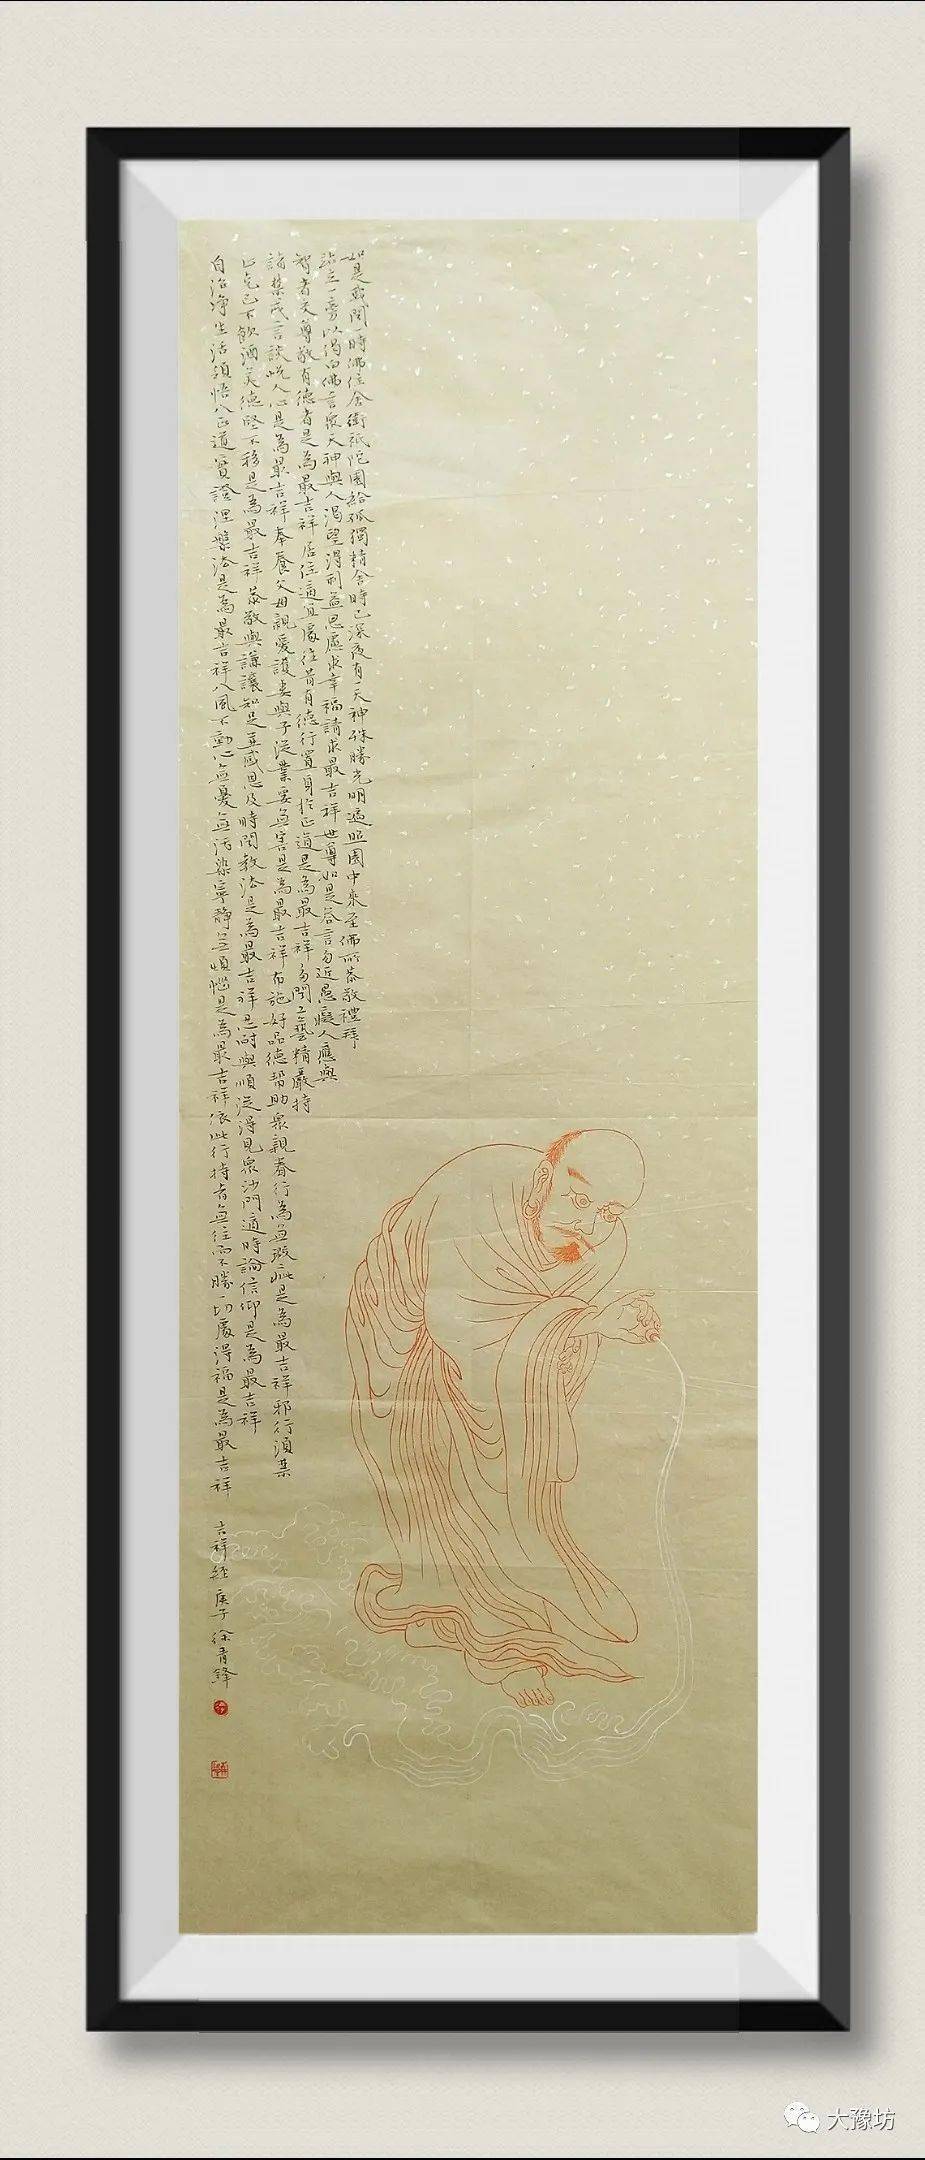 如是我聞一時佛住舍衛祇陀園給孤獨精舍時已深夜有一天神殊勝光明遍照園中來至佛所恭敬禮拜
站立一旁以偈白佛言眾天神與人渴望得利益思慮求幸福請求最吉祥世尊如是答言勿近愚癡人應與
智者交尊敬有德者是為最吉祥居住適宜處往昔有德行置身於正道是為最吉祥多聞工藝精嚴持
諸禁戒言談悅人心是為最吉祥奉養父母親愛護妻與子從業要無害是為最吉祥布施好品德幫助眾親眷行為無瑕疵是為最吉祥邪行須禁
止克己不飲酒美德堅不移是為最吉祥恭敬與謙讓知足並感恩及時聞教法是為最吉祥忍耐與順從得見眾沙門適時論信仰是為最吉祥
自治淨生活領悟八正道實證涅槃法是為最吉祥八風不動心無憂無污染寧靜無煩惱是為最吉祥依此行持者無往而不勝一切處得福是為最吉祥
吉祥經 庚子 徐青鋒
大豫坊